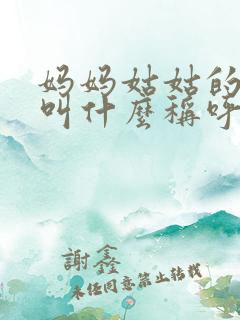 妈妈姑姑的
叫什麼稱呼
謝鑫
未经同意禁止转载